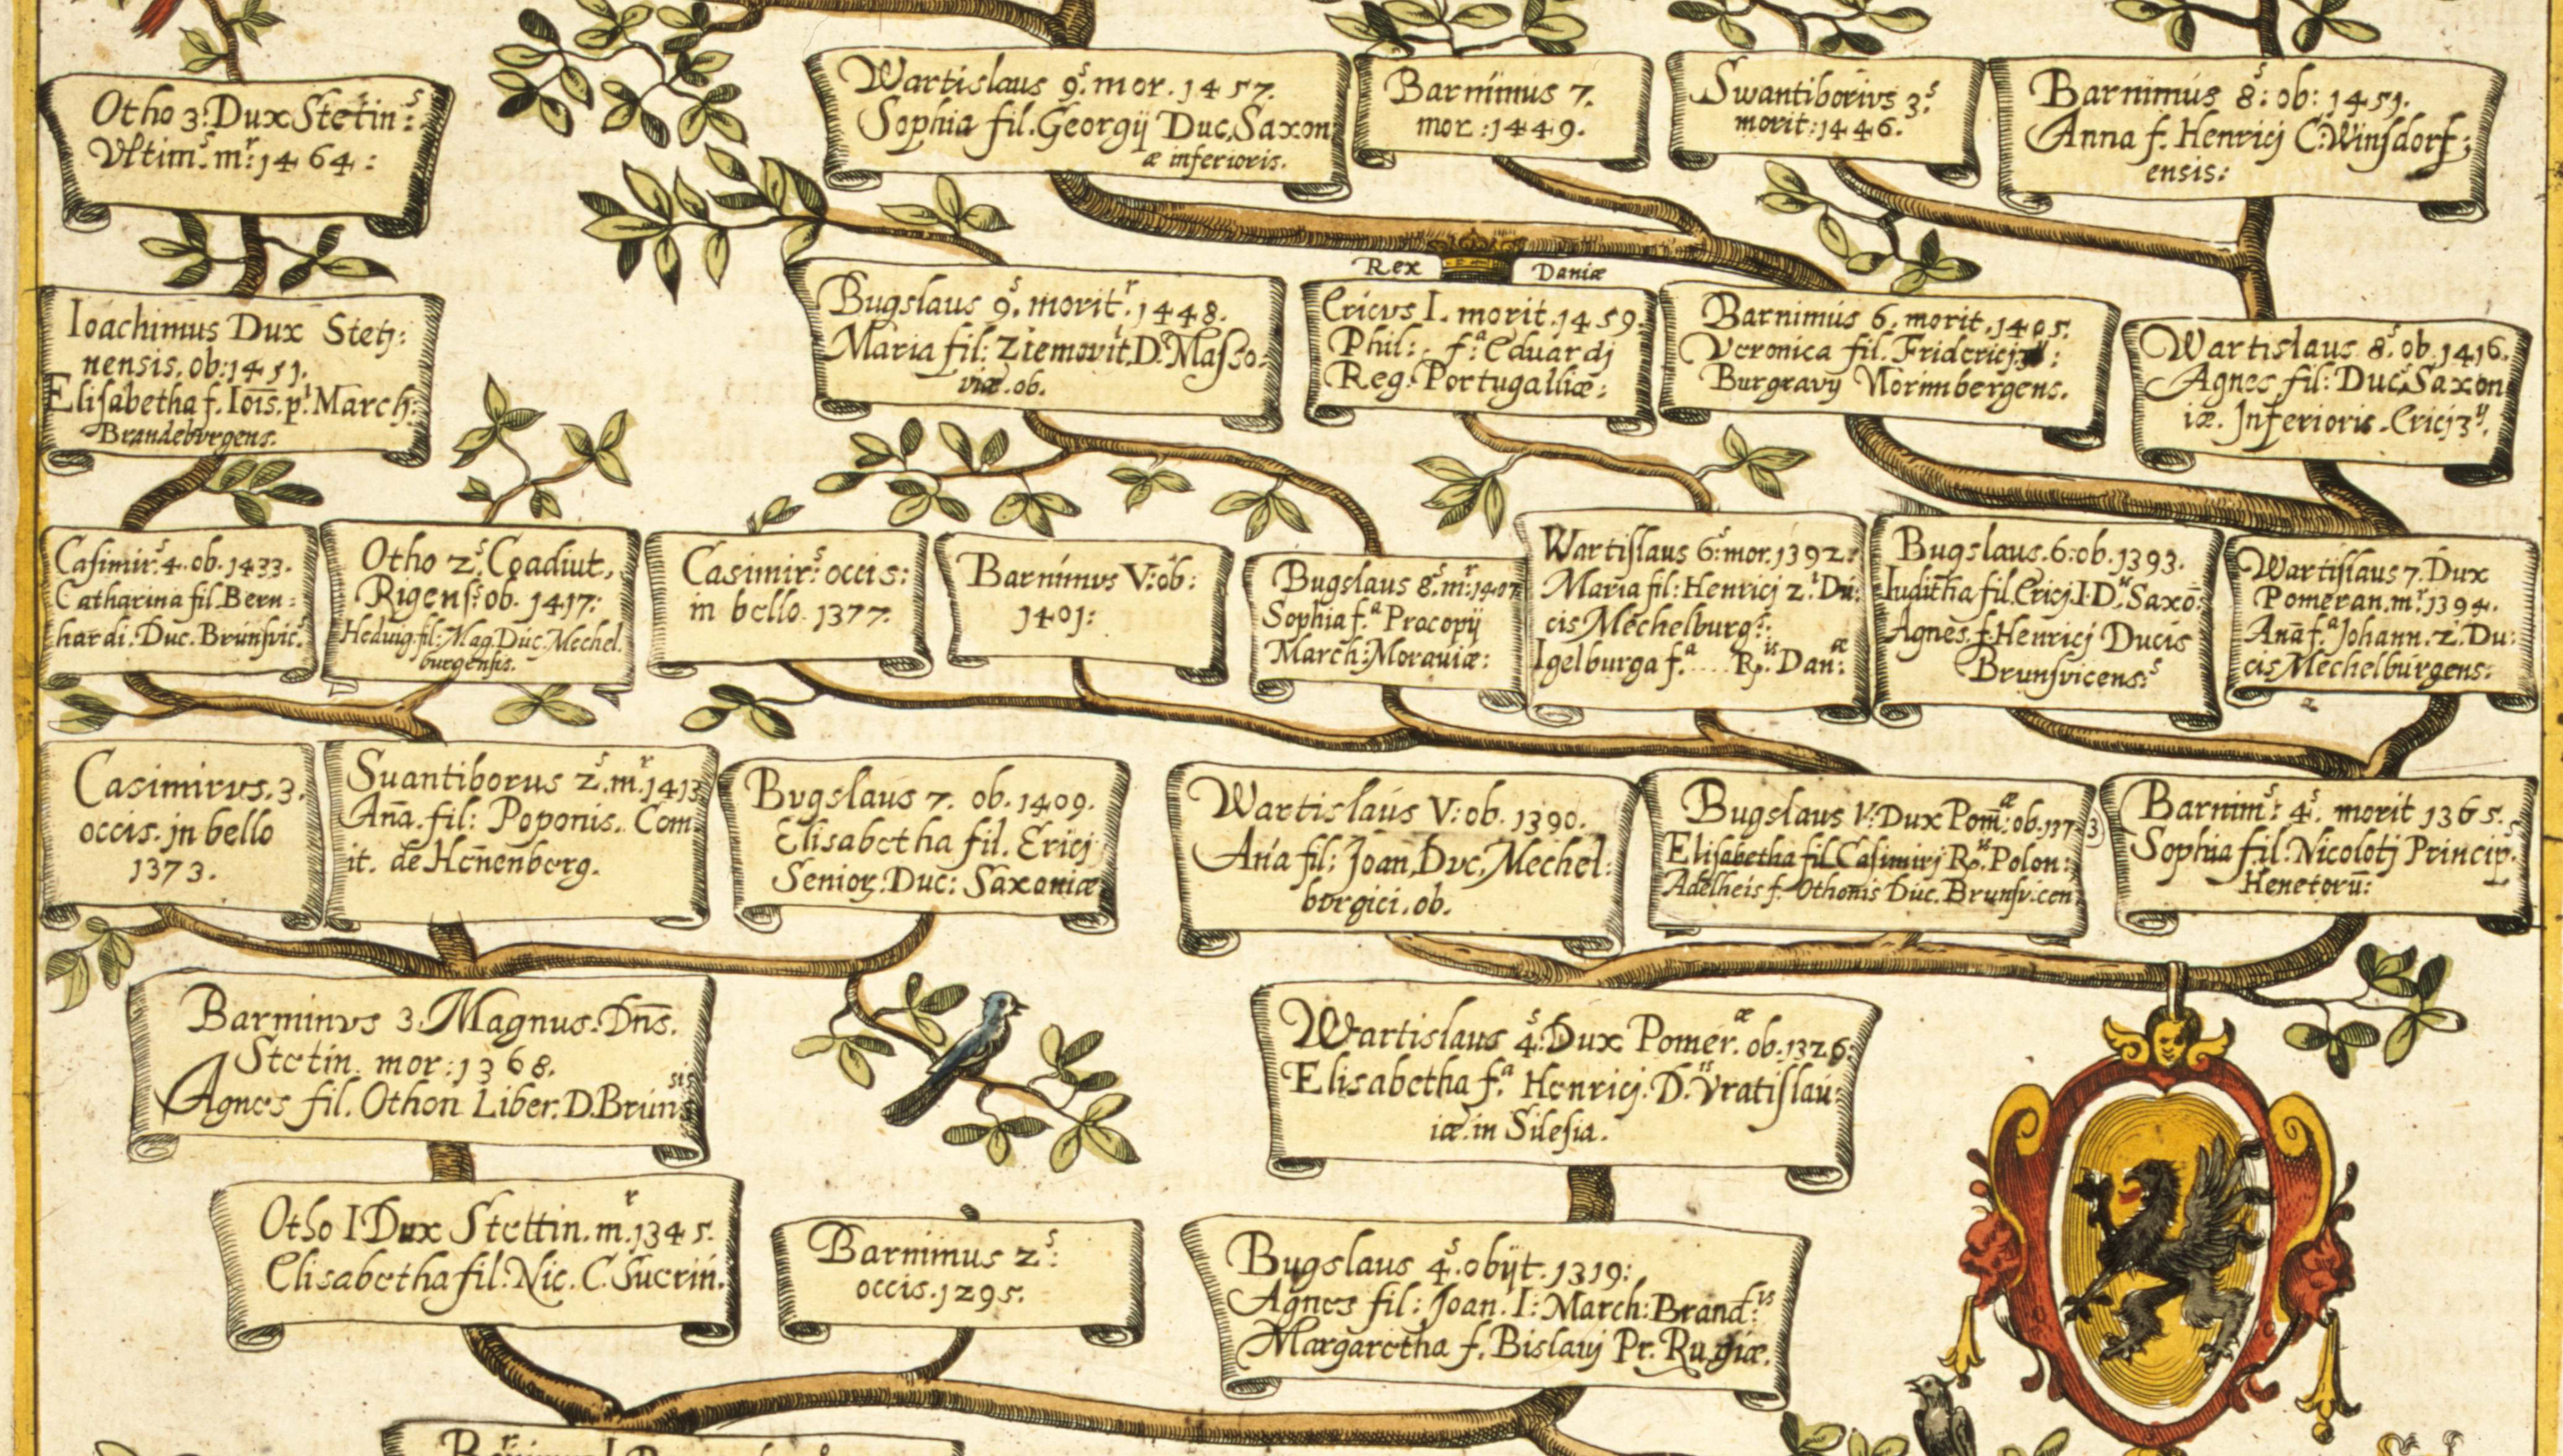 Otho 3: Dux Stetin:s
Vltim.s m.r: 1464:
Wartislaus 9.s mor. 1457.
Sophia fil. Georgij Duc. Saxon
æ inferioris.
Barnimus 7.
mor: 1449.
Swantiborivs 3.s
morit: 1446.
Barnimus 8:s ob: 1451.
Anna f. Henricj C. Winsdorf:
ensis:
Ioachimus Dux Stetj:
nensis. ob: 1451.
Elisabetha f. Iois. p.i March:
Brandebvrgens.
Bugslaus 9.s morit.r 1448.
Maria fil: Ziemovit. D. Masso:
viæ. ob.
Rex Daniæ
Ericvs I. morit. 1459.
Phil: f.a Eduardj
Reg. Portugalliæ:
Barnimus 6. morit. 1405.
Veronica fil. Fridericj
Burgravij Norimbergens.
Wartislaus 8.s ob. 1416.
Agnes fil: Duc. Saxon
iæ. Inferioris. Ericj 3.ij
Casimir.s 4. ob. 1433.
Catharina fil Bern:
hardi. Duc. Brunsvic.s
Otho 2.s Coadiut,
Rigens: ob. 1417:
Hedwig fil: Mag. Duc. Mechel
burgensis.
Casimir:s occis:
in bello 1377.
Barnimvs V: ob:
1401:
Bugslaus 8.s m.r: 1407
Sophia f.a Procopij
March: Moraviæ:
Wartislaus 6:s mor. 1392:
Maria fil: Henricj 2.i Du:
cis Mechelburg:
Igelburga f.a .... R.is Dan:æ
Bugslaus. 6: ob. 1393.
Iuditha fil. Ericj I. D. Saxo:
Agnes f. Henricj Ducis
Brunsvicens:s
Wartislaus 7. Dux
Pomeran. m.r 1394.
Anā f.a Johann. 2. Du:
cis Mechelburgens:
Casimirvs. 3.
occis. in bello
1373.
Suantiborus 2.s m.r 1413
Anā. fil: Poponis. Com
it. de Henenberg.
Bvgslaus 7. ob. 1409.
Elisabetha fil. Ericj
Senior: Duc: Saxoniæ
Wartislaus V: ob. 1390.
Anā fil: Joan. Dvc. Mechel:
bvrgici. ob.
Bugslavs V: Dux Pom:æ ob. 1373
Elisabetha fil Casimirj R. Polon:
Adelheis f. Othonis Duc. Brunsvicen
Barnim:s 4.s morit 1365.
Sophia fil: Nicolotj Princip.s
Henetorū:
Barminvs 3. Magnus. Dns.
Stetin. mor: 1368.
Agnes fil. Othon Liber. D. Brunsis
Wartislaus 4.s Dux Pomer.æ ob. 1326:
Elisabetha f.a Henricj. D.is Vratislau:
iæ. in Silesia.
Otho I Dux Stettin. m.r 1345.
Elisabetha fil: Nic. C. Suerin.
Barnimus 2:s
occis. 1295.
Bugslaus 4.s obijt. 1319:
Agnes fil: Joan. I: March: Brand:is
Margaretha f. Bislaij Pr. Rugiæ.